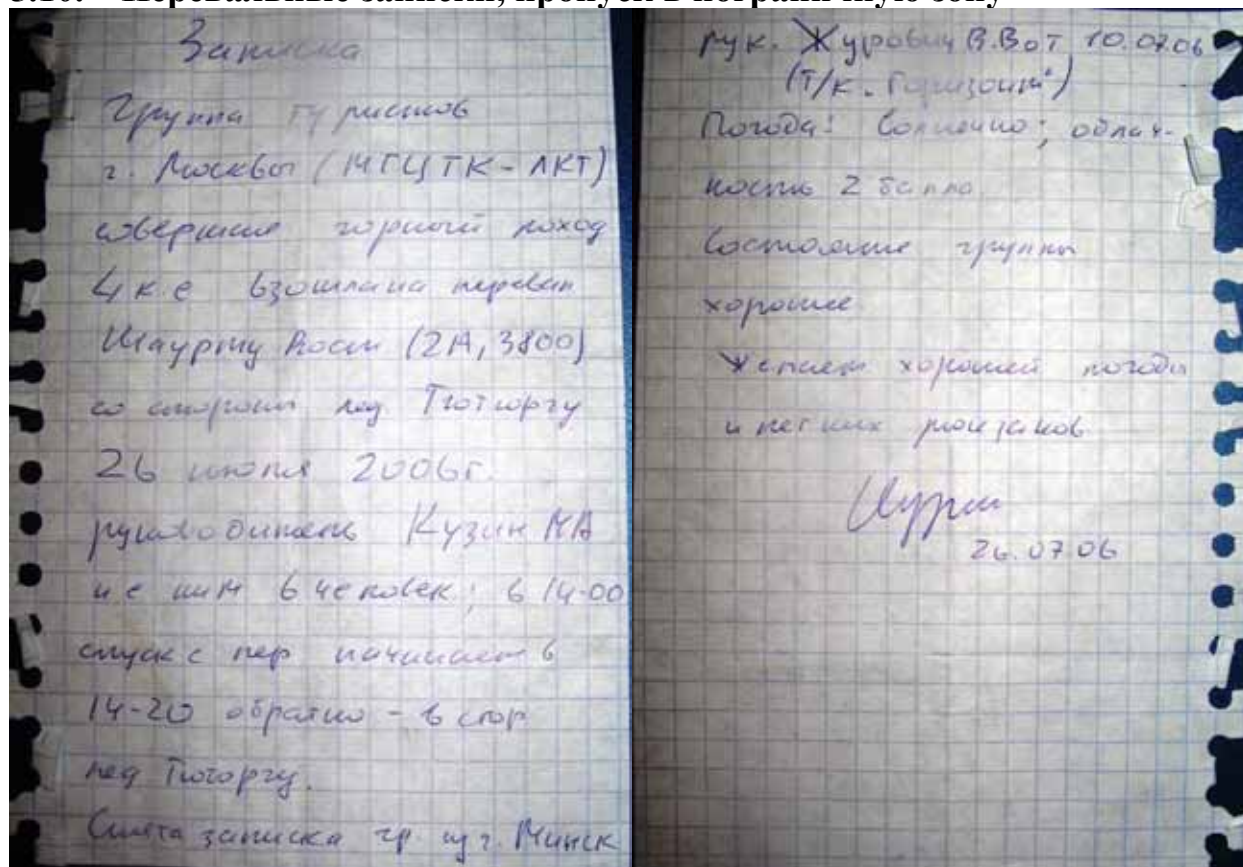 3.10. Перевальные записки, пропуск в пограничную зону
Записка
Группа туристов
г. Москвы (МГЦТК-ЛКТ)
совершая горный поход
4 к.с взошла на перевал
Шаурту (2А, 3800)
со стороны лед Тютюргу
26 июля 2006г.
руководитель Кузин МА
и с ним 6 человек; в 14-00
спуск с пер начинаем в
14-20 обратно - в стор
лед Тютюргу.
Снята записка гр из г. Минск
рук. Журович В.В от 10.07.06
(т/к "Горизонт")
Погода: Солнечно; облач-
ность 2 балла
Состояние группы
хорошее
Желаем хорошей погоды
и легких рюкзаков
26.07.06